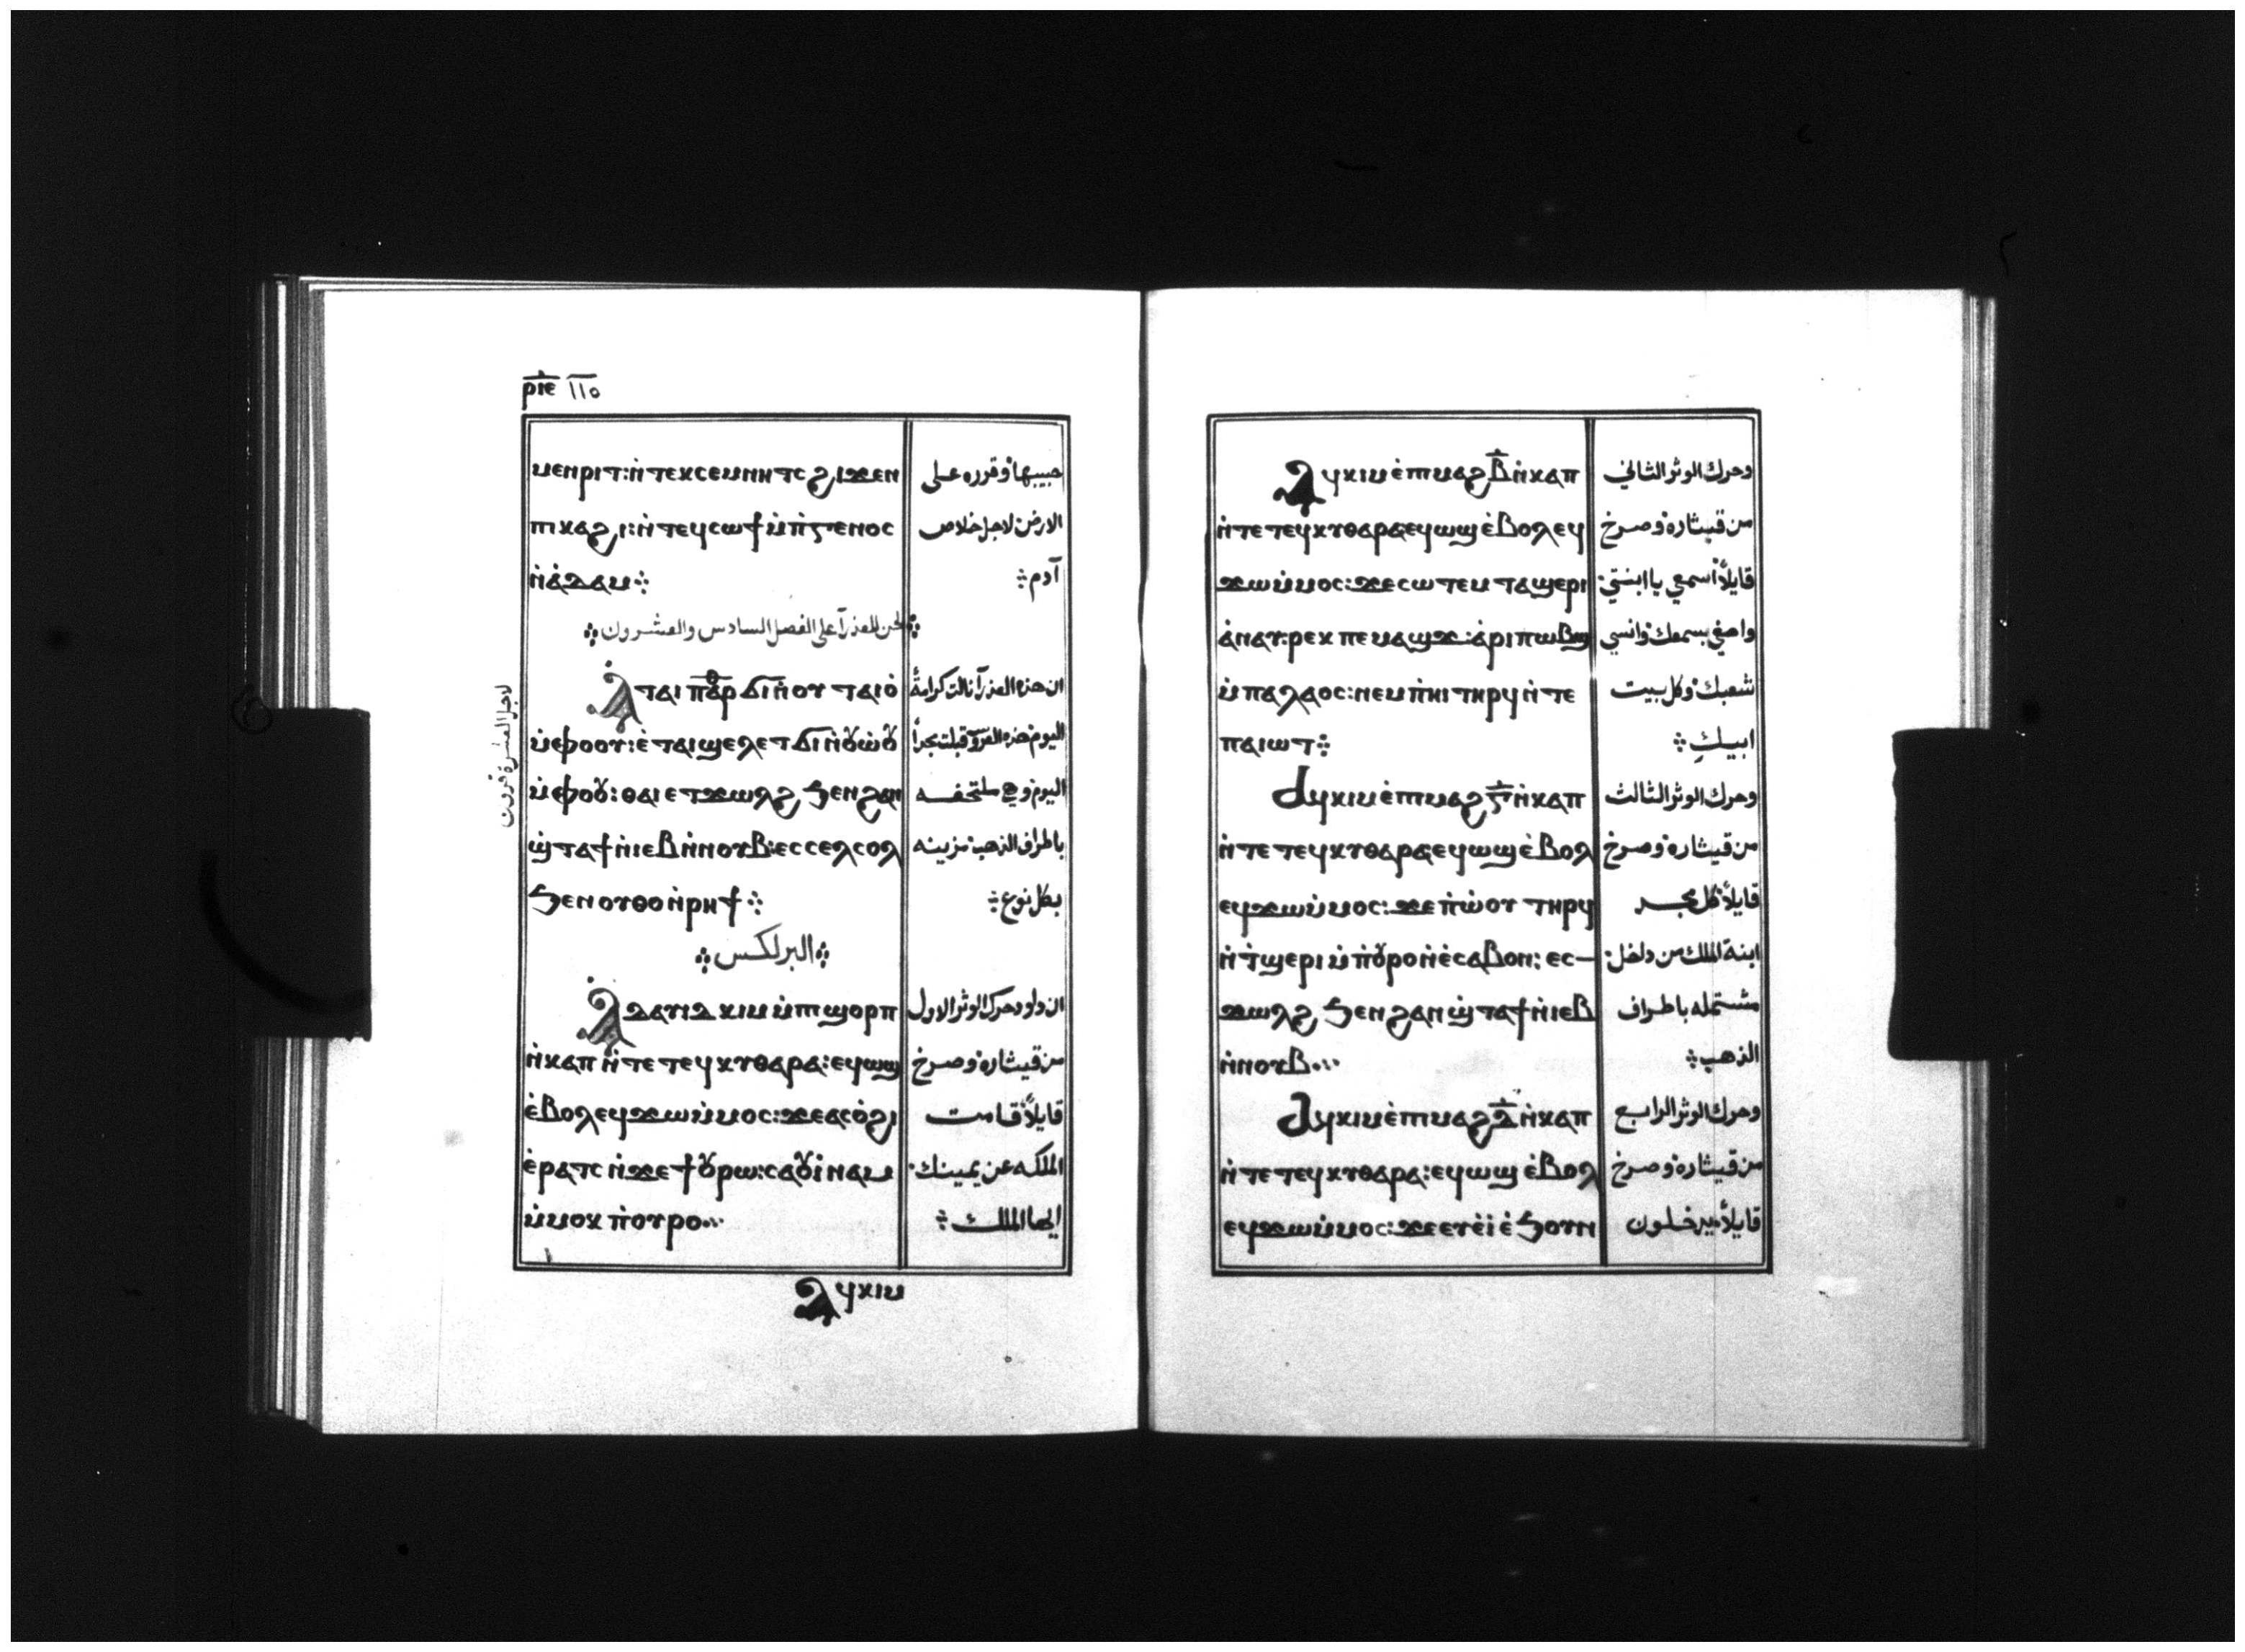 ⲣⲓⲉ ١١٥
ⲙⲉⲛⲣⲓⲧ:ⲛ̀ⲧⲉⲕⲥⲉⲙⲛⲏⲧⲥ ϩⲓϫⲉⲛ حبيبها وقرره على
ⲡⲓⲕⲁϩⲓ:ⲛ̀ⲧⲉϥⲥⲱϯ ⲙ̀ⲡ̀ⲅⲉⲛⲟⲥ الارض لاجل خلاص
ⲛ̀ⲁ̀ⲇⲁⲙ⁘ آدم⁘
⁘لحن للعذرآ على الفصل السادس والعشرون⁘
ⲁⲧⲁⲓ ⲡⲁⲣ ϭⲓⲛ̀ⲟⲩ ⲧⲁⲓⲟ̀ ان هذه العذرآ نالت كرامةً
ⲙ̀ⲫⲟⲟⲩ:ⲉ̀ⲧⲁⲓϣⲉⲗⲉⲧ ϭⲓⲛ̀ⲟⲩⲱ̀ⲟⲩ اليوم هذه العروسة قبلت مجداً
ⲙ̀ⲫⲟⲟⲩ:ⲑⲁⲓ ⲉⲧϫⲱⲗϩ ϧⲉⲛ ϩⲁⲛ اليوم وهي ملتحفه
ϣ̀ⲧⲁϯ ⲛ̀ⲓⲉⲃ ⲛ̀ⲛⲟⲩⲃ:ⲉⲥⲥⲉⲗⲥⲟⲗ باطراف الذهب مزينه
ϧⲉⲛ ⲟⲩⲑⲟ ⲛ̀ⲣⲏϯ⁘ بكل نوع⁘
⁘البرلكس⁘
ⲁⲇⲁⲩⲓⲇ ⲕⲓⲙ ⲙ̀ⲡⲓϣⲟⲣⲡ ان داود حرك الوثر الاول
ⲛ̀ⲕⲁⲡ ⲛ̀ⲧⲉ ⲧⲉϥⲕⲩⲑⲁⲣⲁ:ⲉϥⲱϣ من قيثاره وصرخ
ⲉ̀ⲃⲟⲗ ⲉϥϫⲱ ⲙ̀ⲙⲟⲥ:ϫⲉ ⲁⲥⲟ̀ϩⲓ قايلاً قامت
ⲉ̀ⲣⲁⲧⲥ ⲛ̀ϫⲉ ϯⲟⲩⲣⲱ:ⲥⲁⲟⲩⲓ̀ⲛⲁⲙ الملكه عن يمينك
ⲙ̀ⲙⲟⲕ ⲡ̀ⲟⲩⲣⲟ⁘ ايها الملك⁘
ⲁϥⲕⲓⲙ
لاجل العشرة قرون
ⲁϥⲕⲓⲙ ⲉ̀ⲡⲓⲙⲁϩ ⲃ̅ ⲛ̀ⲕⲁⲡ وحرك الوثر الثاني
ⲛ̀ⲧⲉ ⲧⲉϥⲕⲩⲑⲁⲣⲁ ⲉϥⲱϣ ⲉ̀ⲃⲟⲗ ⲉϥ من قيثاره وصرخ
ϫⲱ ⲙ̀ⲙⲟⲥ:ϫⲉ ⲥⲱⲧⲉⲙ ⲧⲁϣⲉⲣⲓ قايلاً اسمعي يا ابنتي
ⲁ̀ⲛⲁⲩ:ⲣⲉⲕ ⲡⲉⲙⲁϣϫ:ⲁ̀ⲣⲓⲡⲱⲃϣ واصغي بسمعك وانسي
ⲙ̀ⲡⲁⲗⲁⲟⲥ:ⲛⲉⲙ ⲡ̀ⲏⲓ ⲧⲏⲣϥ ⲛ̀ⲧⲉ شعبك وكل بيت
ⲡⲁⲓⲱⲧ⁘ ابيك⁘
ⲁϥⲕⲓⲙ ⲉ̀ⲡⲓⲙⲁϩ ⲅ̅ ⲛ̀ⲕⲁⲡ وحرك الوثر الثالث
ⲛ̀ⲧⲉ ⲧⲉϥⲕⲩⲑⲁⲣⲁ ⲉϥⲱϣ ⲉ̀ⲃⲟⲗ من قيثاره وصرخ
ⲉϥϫⲱ ⲙ̀ⲙⲟⲥ:ϫⲉ ⲡ̀ⲱ̀ⲟⲩ ⲧⲏⲣϥ قايلاً كل مجد
ⲛ̀ⲧ̀ϣⲉⲣⲓ ⲙ̀ⲡ̀ⲟⲩⲣⲟ ⲛ̀ⲉ̀ⲥⲁⲃⲟⲛ:ⲉⲥ- ابنة الملك من داخل
ϫⲱⲗϩ ϧⲉⲛ ϩⲁⲛ ϣ̀ⲧⲁϯ ⲛ̀ⲓⲉⲃ مشتمله باطراف
ⲛ̀ⲛⲟⲩⲃ⁘ الذهب⁘
ⲁϥⲕⲓⲙ ⲉ̀ⲡⲓⲙⲁϩ ⲇ̅ ⲛ̀ⲕⲁⲡ وحرك الوثر الرابع
ⲛ̀ⲧⲉ ⲧⲉϥⲕⲩⲑⲁⲣⲁ:ⲉϥⲱϣ ⲉ̀ⲃⲟⲗ من قيثاره وصرخ
ⲉϥϫⲱ ⲙ̀ⲙⲟⲥ:ϫⲉ ⲉⲩⲉ̀ⲓ̀ ⲉ̀ϧⲟⲩⲛ قايلاً يدخلون